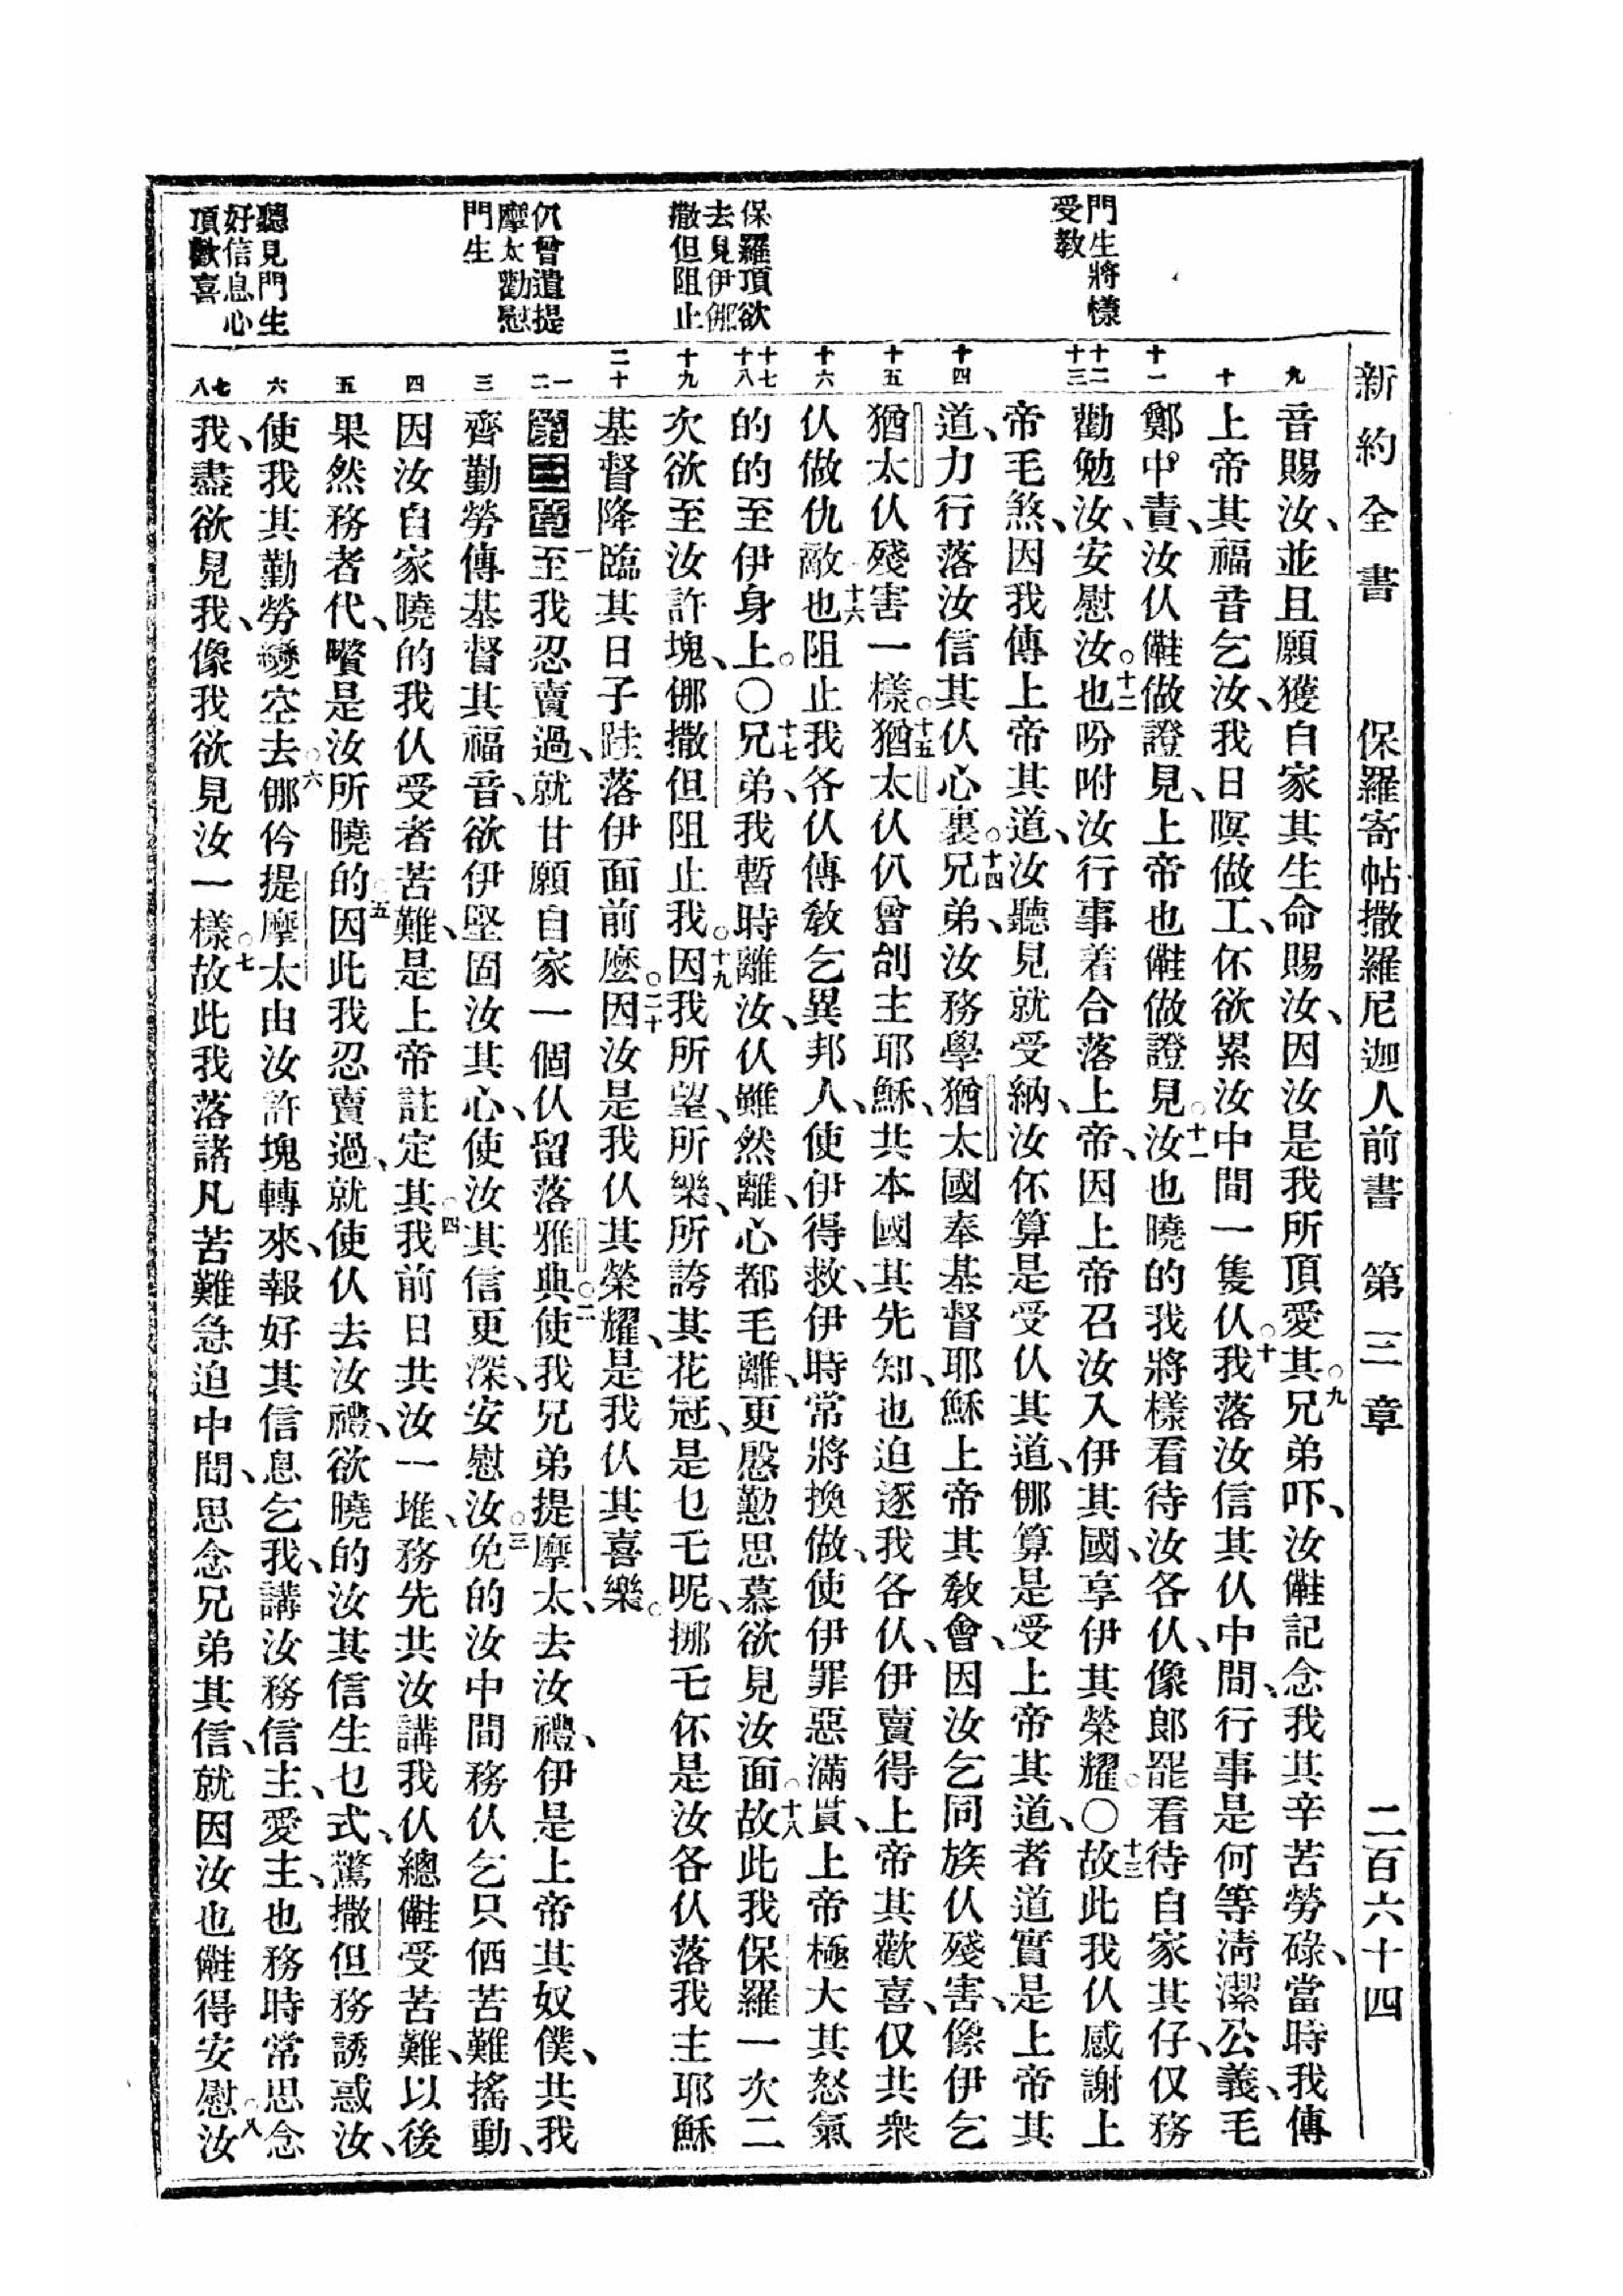 新約全書 保羅寄帖撒羅尼迦人前書 第三章 二百六十四
門生將樣
受教
保羅頂欲
去見伊㑚
撒但阻止
仈曾遣提
摩太勸慰
門生
聽見門生
好信息心
頂歡喜
九
十
十一
十二
十三
十四
十五
十六
十七
十八
十九
二十
一
二
三
四
五
六
七
八
音賜汝、並且願獲自家其生命賜汝、因汝是我所頂愛其○九兄弟吓、汝㒕記念我其辛苦勞碌、當時我傳
上帝其福音乞汝、我日暝做工、伓欲累汝中間一隻仈○十我落汝信其仈中間、行事是何等清潔公義、毛
鄭中責、汝仈㒕做證見、上帝也㒕做證見○十一汝也曉的我將樣看待汝各仈、像郎罷看待自家其仔、仅務
勸勉汝、安慰汝○十二也吩咐汝行事着合落上帝、因上帝召汝入伊其國、享伊其榮耀○〇十三故此我仈感謝上
帝毛煞、因我傳上帝其道、汝聽見就受納、汝伓算是受仈其道、㑚算是受上帝其道、者道實是上帝其
道、力行落汝信其仈心裏○十四兄弟、汝務學猶太國奉基督耶穌上帝其教會、因汝乞同族仈殘害、像伊乞
猶太仈殘害一樣○十五猶太仈仈曾刣主耶穌、共本國其先知、也迫逐我各仈、伊賣得上帝其歡喜、仅共衆
仈做仇敵也○十六阻止我各仈傳敎乞異邦人、使伊得救、伊時常將換做、使伊罪惡滿貰、上帝極大其怒氣
的的至伊身上○〇十七兄弟、我暫時離汝、仈雖然離、心都毛離、更慇懃思慕欲見汝面○十八故此我保羅一次二
次欲至汝許塊、㑚撒但阻止我○十九因我所望、所樂、所誇其花冠、是乜乇呢、挪乇伓是汝各仈落我主耶穌
基督降臨其日子、跬落伊面前麼○二十因汝是我仈其榮耀、是我仈其喜樂○
第三章一至我忍賣過、就甘願自家一個仈留落雅典○二使我兄弟提摩太、去汝禮、伊是上帝其奴僕、共我
齊勤勞傳基督其福音、欲伊堅固汝其心、使汝其信更深、安慰汝○三免的汝中間務仈乞只㑚苦難搖動、
因汝自家曉的我仈受者苦難、是上帝註定其○四我前日共汝一堆、務先共汝講我仈總㒕受苦難、以後
果然務者代、嚽是汝所曉的○五因此我忍賣過、就使仈去汝禮、欲曉的汝其信生乜式、驚撒但務誘惑汝、
使我其勤勞變空去○六㑚伶提摩太由汝許塊轉來、報好其信息乞我、講汝務信主、愛主、也務時常思念
我、盡欲見我、像我欲見汝一樣○七故此我落諸凡苦難急迫中間、思念兄弟其信、就因汝也㒕得安慰○八汝